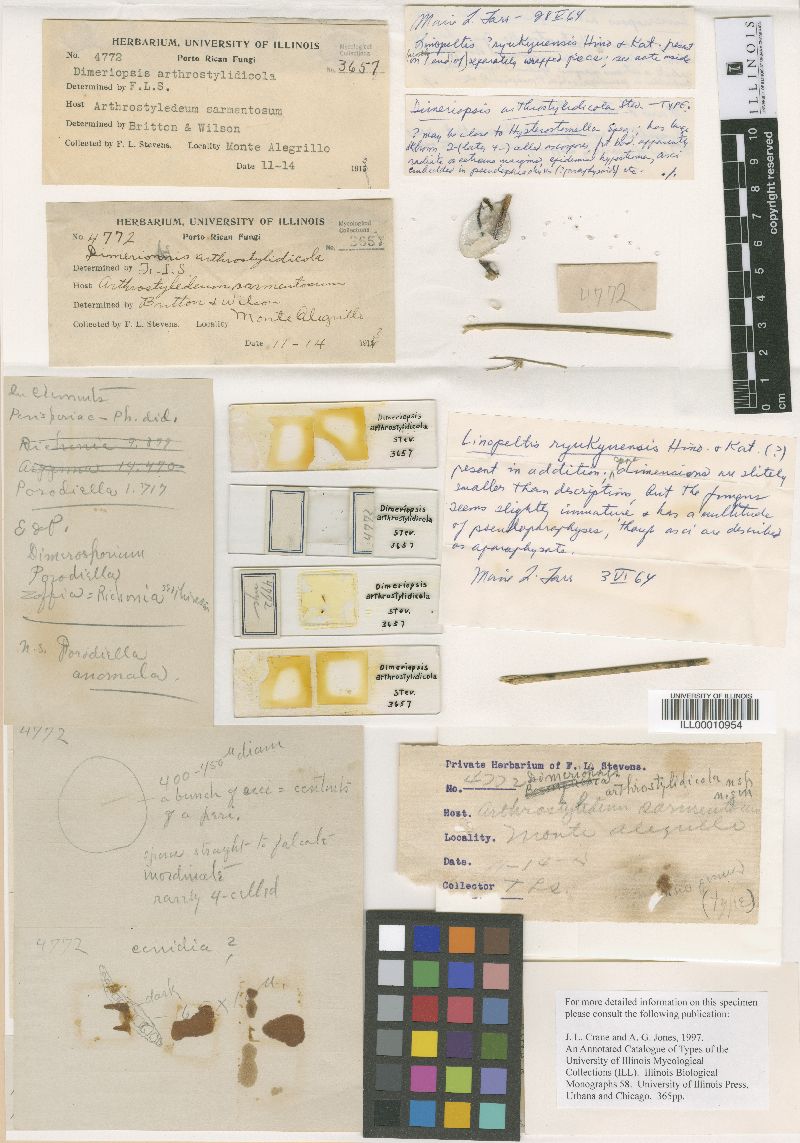 HERBARIUM, UNIVERSITY OF ILLINOIS
No. 4772 Porto Rican Fungi
Mycological Collections
No. 3657
Dimeriopsis arthrostylidicola
Determined by F.L.S.
Host Arthrostyledeum sarmentosum
Determined by Britton & Wilson
Collected by F. L. Stevens. Locality Monte Alegrillo
Date 11-14 191
HERBARIUM, UNIVERSITY OF ILLINOIS
No. 4772 Porto Rican Fungi
Mycological Collections
No. 3657
arthrostylidicola
Determined by F.L.S
Host Arthrostyledeum sarmentosum
Determined by Britton & Wilson
Collected by F. L. Stevens. Locality Monte Alegrillo
Date 11-14 191
Marie L. Farr - 28 V 64
Linopeltis ?ryukyuensis Hino & Kat. present
on 1 end of separately wrapped piece; see note inside
Dimeriopsis arthrostylidicola Stev. - TYPE.
? may be close to Hysterostomella Speg.; has large
2-(later 4-) celled ascospores, apparently
radiate margins, epidermal hypostroma, asci
embedded in
4772
ILLINOIS
10 9 8 7 6 5 4 3 2 1 0 cm
copyright reserved
In Clements
Perisporiac - Ph. did.
Richonia
Parodiella 1.717
E & P.
Dimerosporium
Parodiella
Zopfia = Richonia
n.s. Parodiella
anomala.
Dimeriopsis
arthrostylidicola
Stev.
3657
4772
Dimeriopsis
arthrostylidicola
Stev.
3657
4772
Dimeriopsis
arthrostylidicola
Stev.
3657
Dimeriopsis
arthrostylidicola
Stev.
3657
Linopeltis ryukyuensis Hino & Kat. (?)
present in addition. Dimensions are slitely
smaller than description, but the fungus
seems slightly immature & has a multitude
of pseudoparaphyses, though asci are described
as aparaphysate.
Marie L. Farr 3 VI 64
UNIVERSITY OF ILLINOIS
ILL00010954
4772
400-450 µ diam
a bunch of asci = contents
of a peri.
spores straight to falcate
inordinate
rarely 4-celled
4772 conidia ?
dark
Private Herbarium of F. L. Stevens.
No. 4772 Dimeriopsis
arthrostylidicola n sp
n. gen
Host. Arthrostyledium sarmentosum
Locality. Monte alegrillo
Date. 11-14
Collector F L S.
(type)
For more detailed information on this specimen
please consult the following publication:
J. L. Crane and A. G. Jones, 1997.
An Annotated Catalogue of Types of the
University of Illinois Mycological
Collections (ILL). Illinois Biological
Monographs 58. University of Illinois Press,
Urbana and Chicago. 365pp.